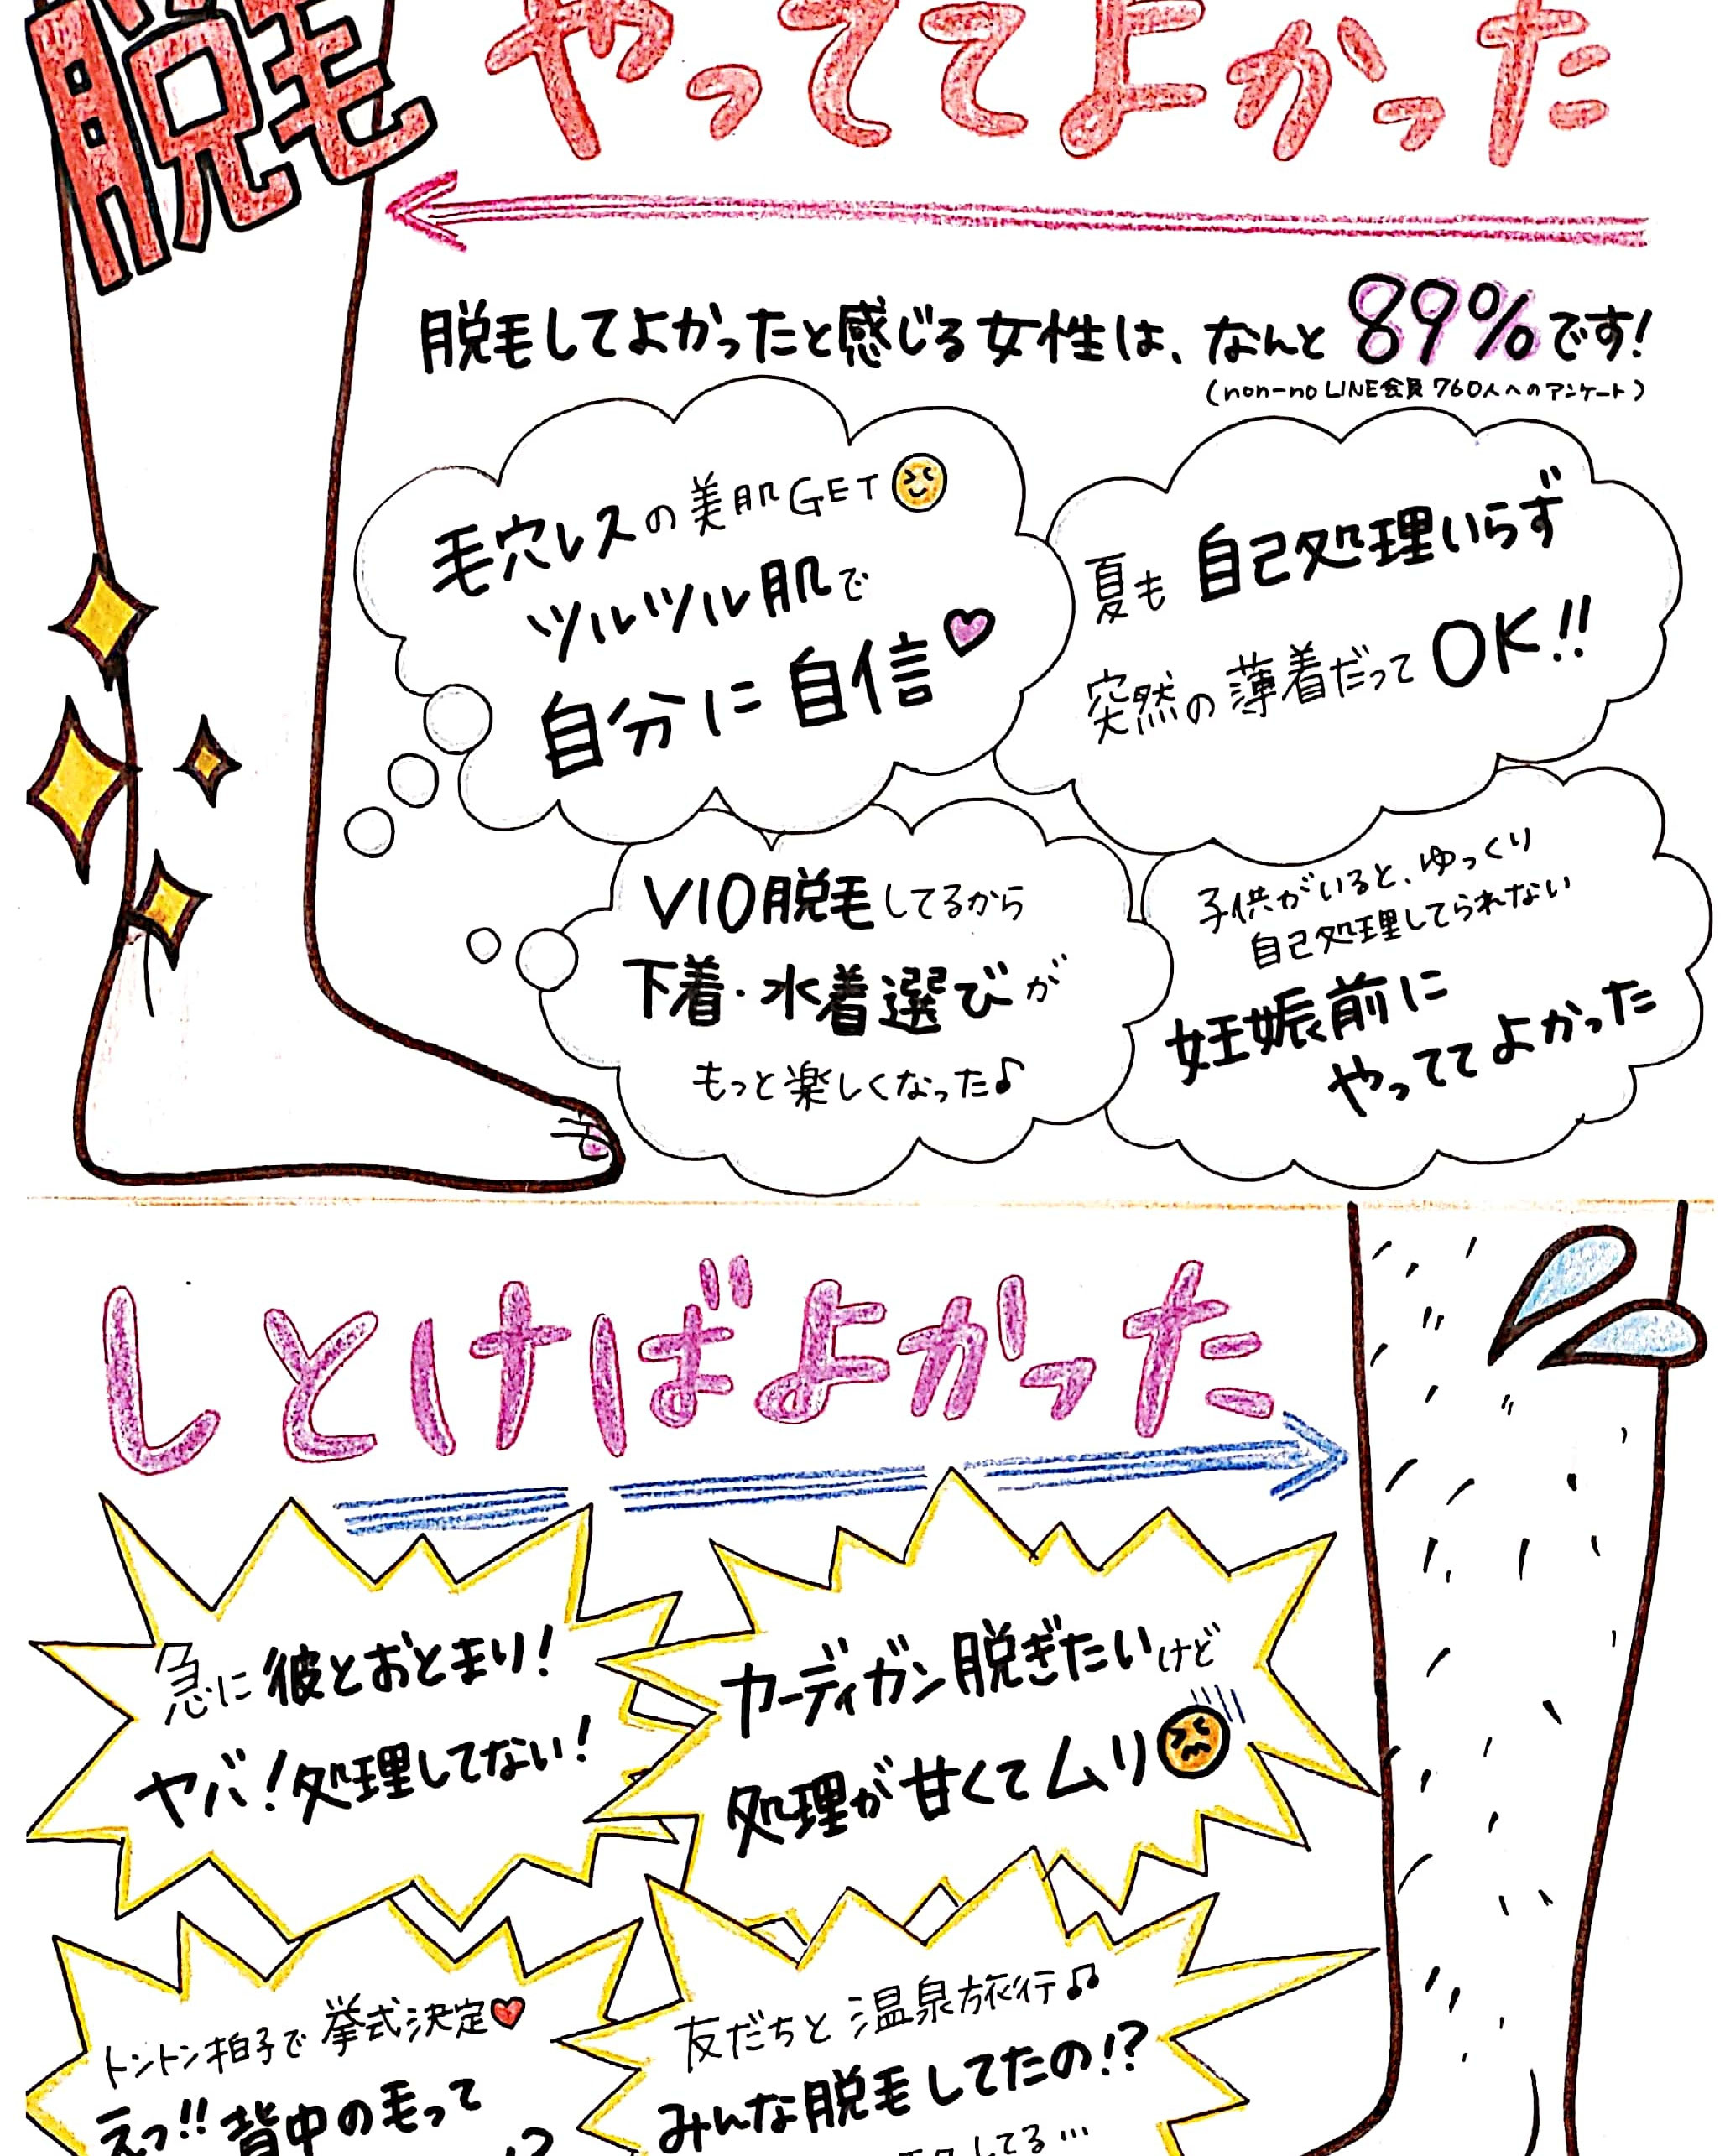 脱毛
やっててよかった
脱毛してよかったと感じる女性は、なんと89%です!
(non-no LINE会員760人へのアンケート)
毛穴レスの美肌GET
ツルツル肌で
自分に自信
夏も自己処理いらず
突然の薄着だってOK!!
VIO脱毛してるから
下着・水着選びが
もっと楽しくなった♪
子供がいると、ゆっくり
自己処理してられない
妊娠前に
やっててよかった
しとけばよかった
急に彼とおとまり!
ヤバ!処理してない!
カーディガン脱ぎたいけど
処理が甘くてムリ
トントン拍子で挙式決定
えっ!!背中の毛って
友だちと温泉旅行♫
みんな脱毛してたの!?
してる…